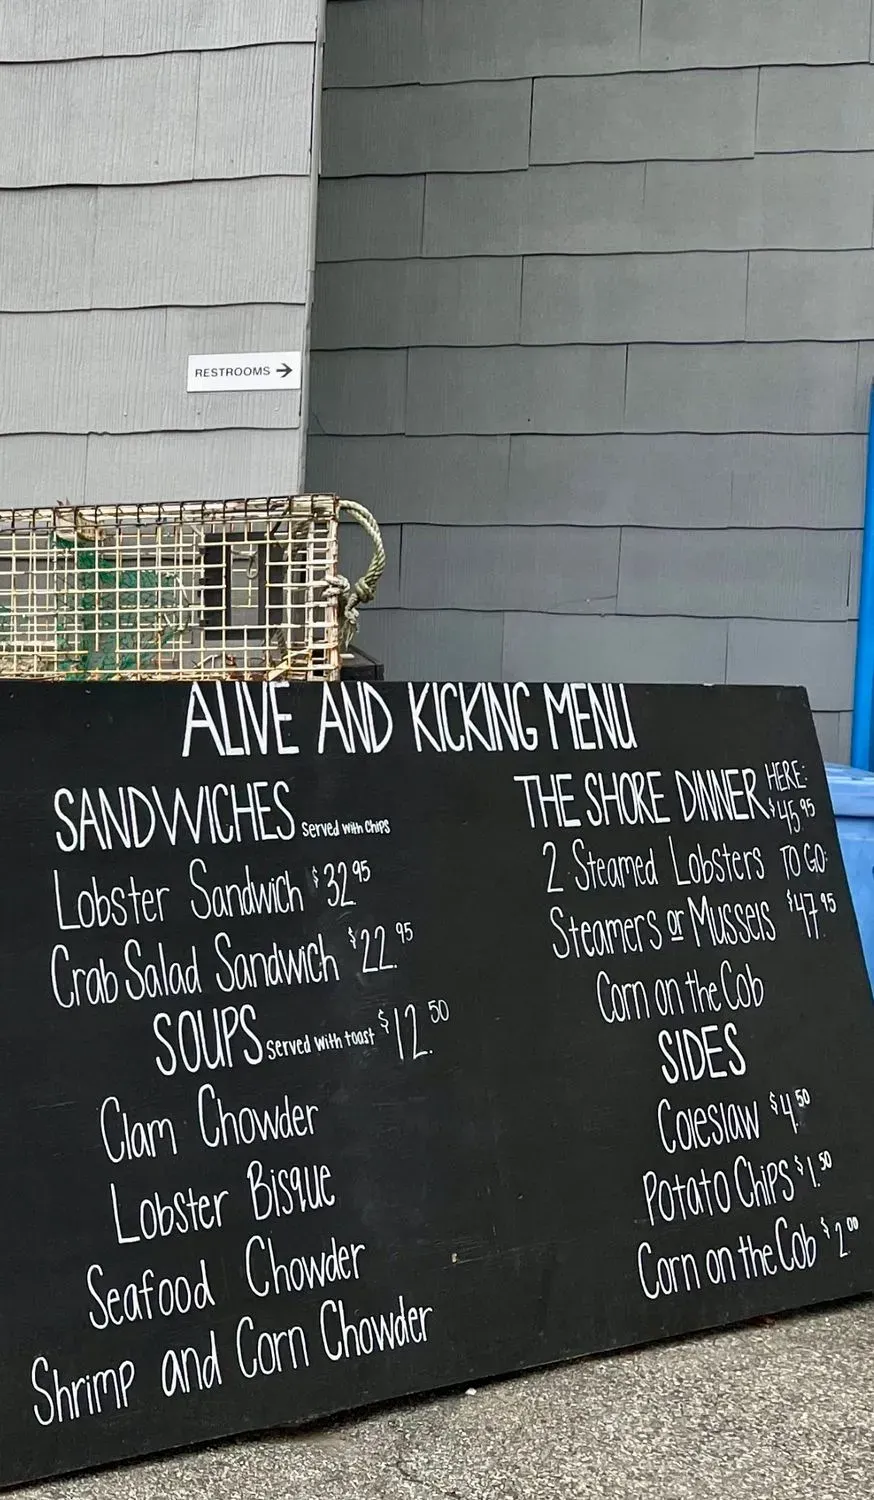 RESTROOMS →
ALIVE AND KICKING MENU
SANDWICHES Served with Chips
Lobster Sandwich $32.95
Crab Salad Sandwich $22.95
SOUPS Served with toast $12.50
Clam Chowder
Lobster Bisque
Seafood Chowder
Shrimp and Corn Chowder
THE SHORE DINNER HERE: $45.95
2 Steamed Lobsters TO GO:
Steamers or Mussels $47.95
Corn on the Cob
SIDES
Coleslaw $4.50
Potato Chips $1.50
Corn on the Cob $2.00